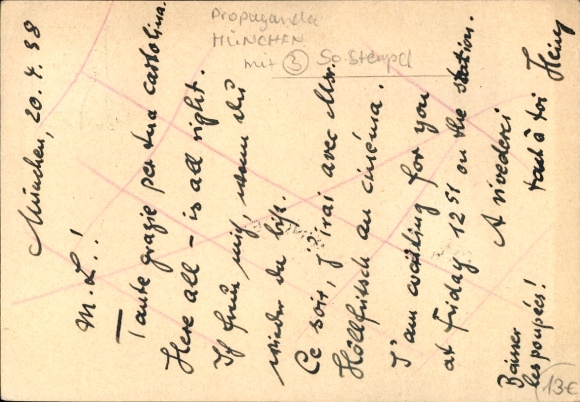 Propaganda
MÜNCHEN
mit 3 So.Stempel
München, 20.4.38
M. L.!
— Tante grazie per tua cartolina.
Here all – is all right.
Ich freu mich, wenn du
wieder da bist.
Ce soir, j'irai avec Mr.
Höllfritsch au cinéma.
I'am waiting for you
at Friday 12 51 on the station.
A rivederci
tout à toi Heinz
Baiser
les poupées!
13€